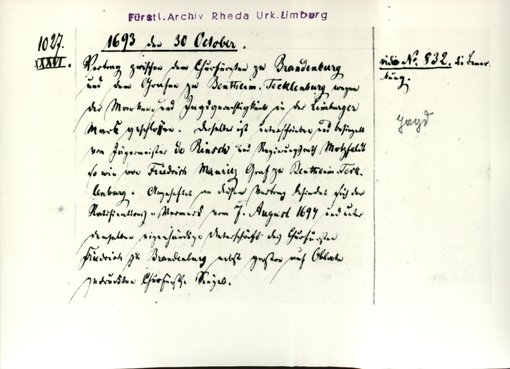 Fürstl. Archiv Rheda Urk. Limburg
1027.
XXXVI.
1693 den 30 October.
Vertrag zwischen dem Churfürsten zu Brandenburg
und dem Grafen zu Bentheim-Tecklenburg wegen
der Marken- und Jagdgerechtigkeit in der Limburger
Mark geschlossen. Derselbe ist unterschrieben und besiegelt
von Jägermeister und Regierungsrath
so wie von Friedrich Mauritz Graf zu Bentheim-Teck-
lenburg. Angeheftet an diesen Vertrag befindet sich der
Ratifications- vom 7. August 1697 und unter
demselben eigenhändige Unterschrift des Churfürsten
Friedrich zu Brandenburg nebst auf Oblate
gedrucktem Siegel.
vide No. 832. die Bemer-
kung.
Jagd